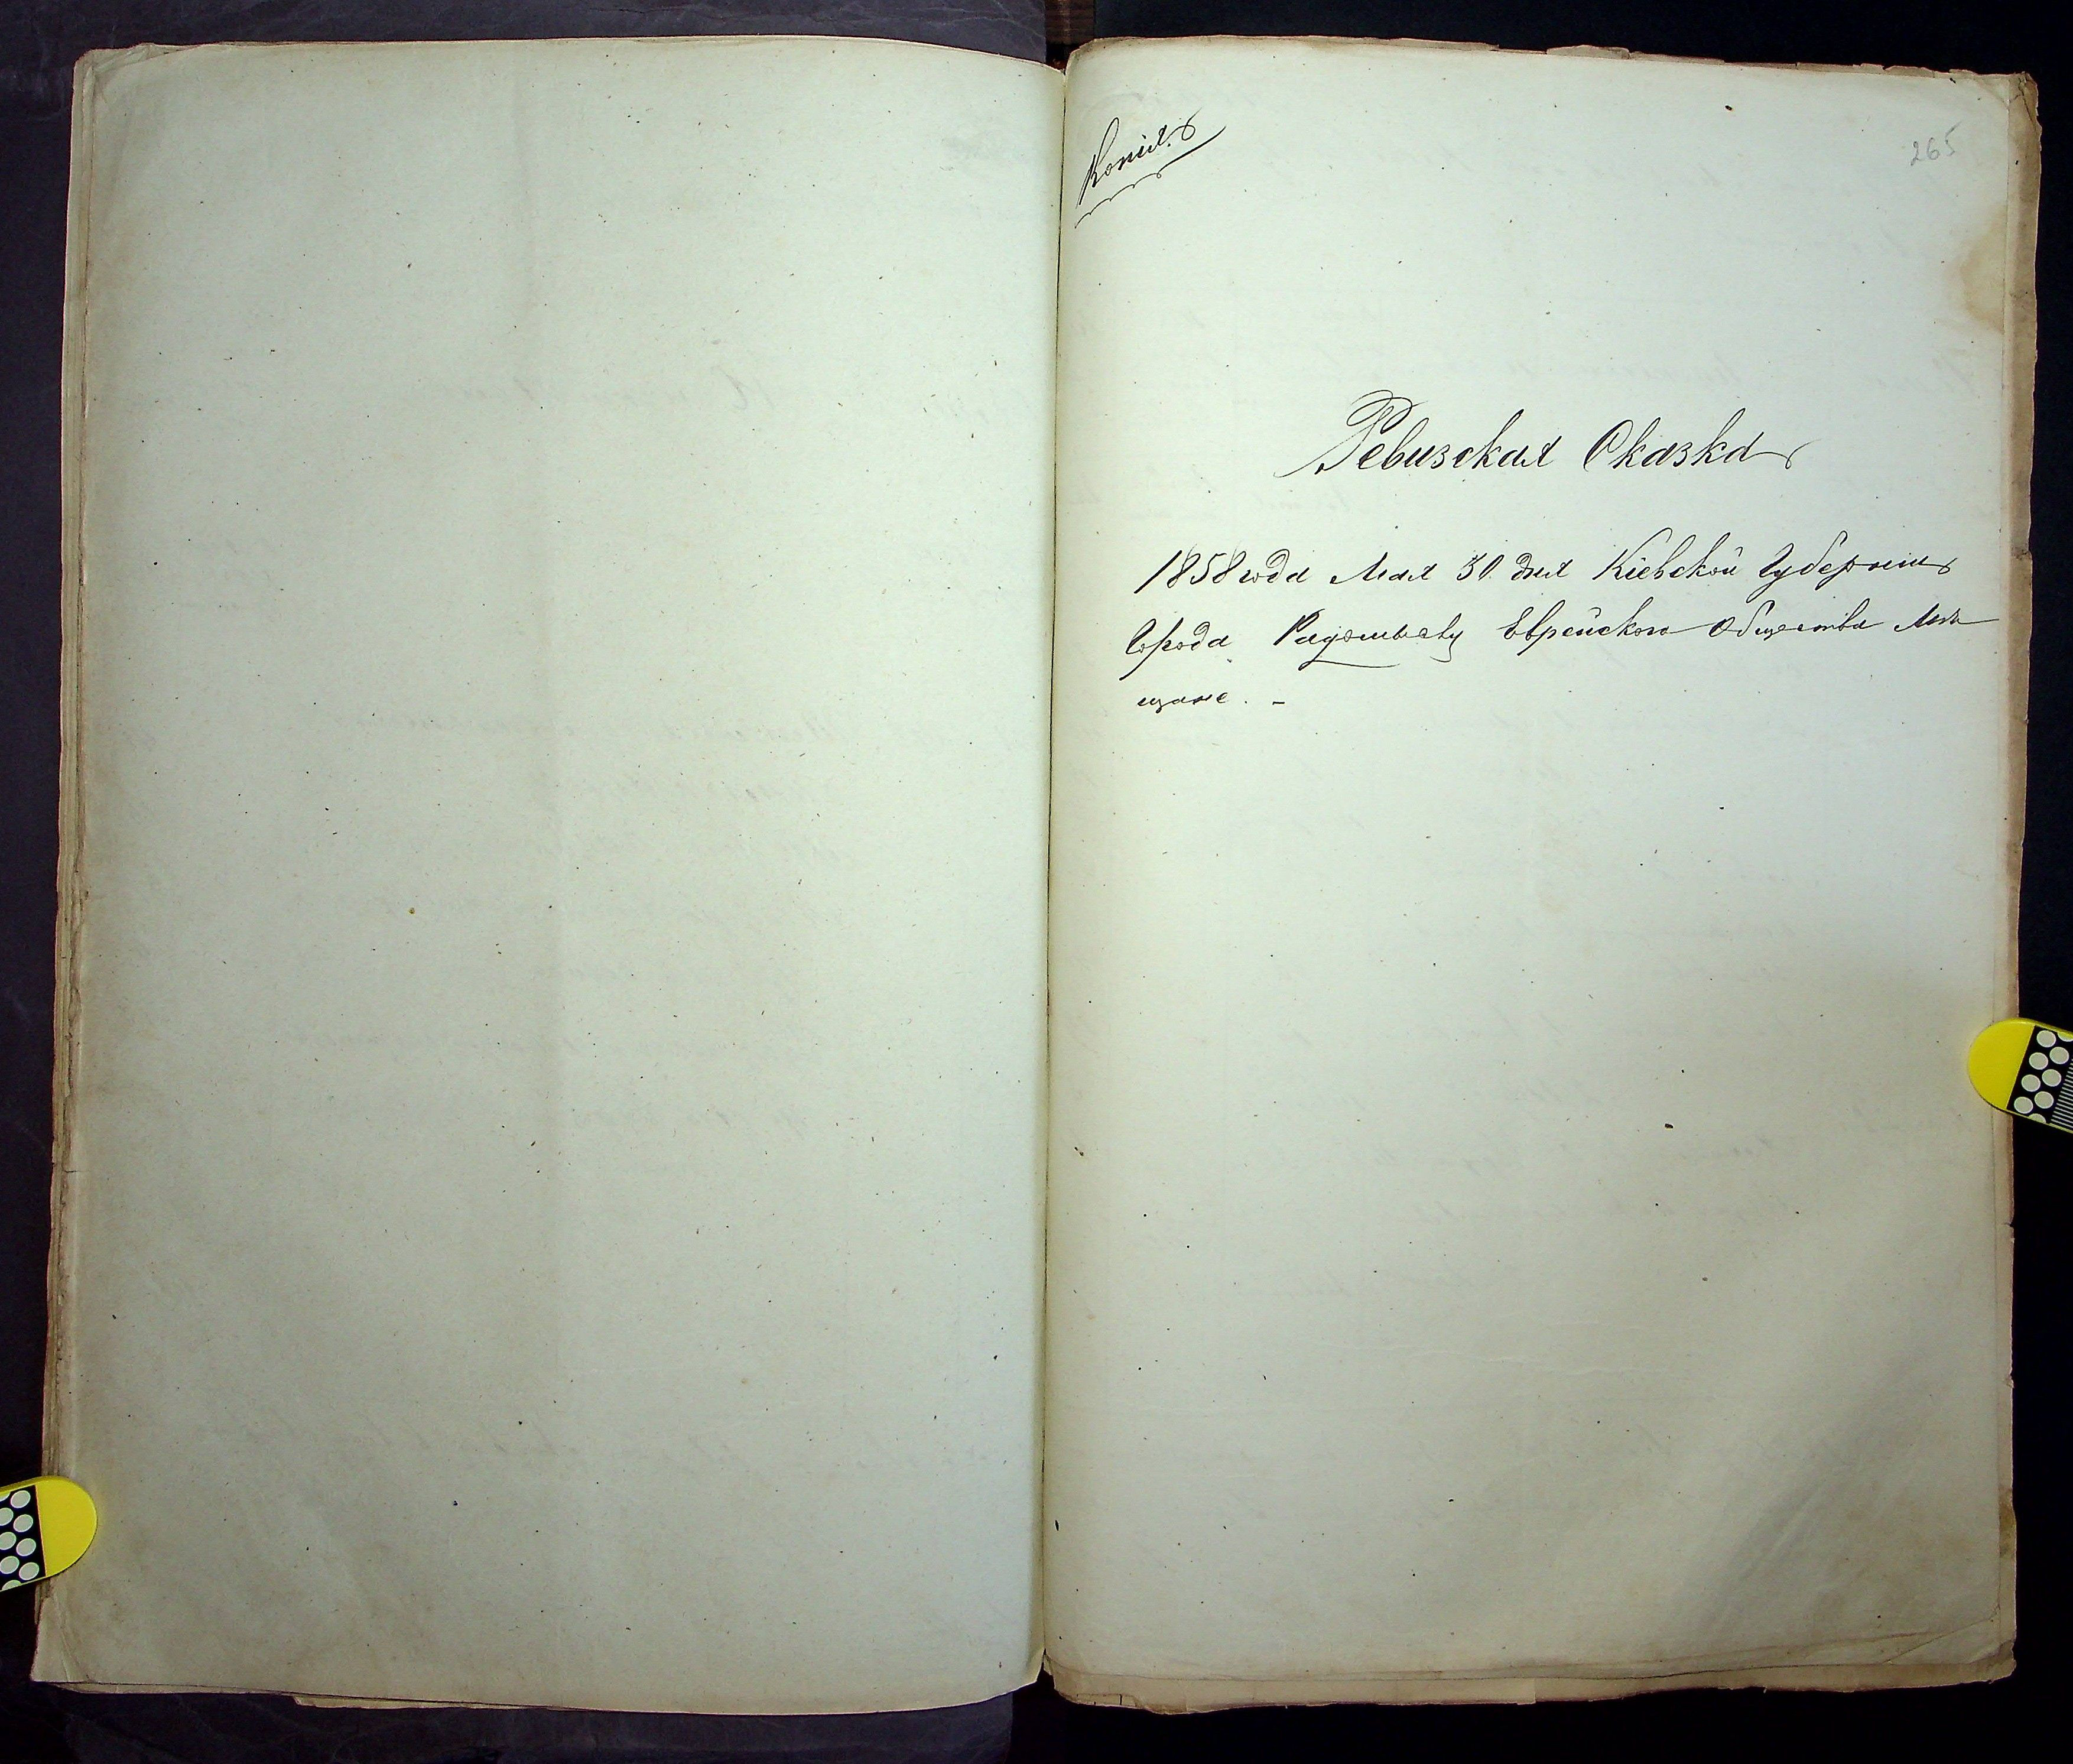 Копія.
265
Ревизская Сказка
1858 года Мая 30 дня Кіевской Губерніи
Города Радомысля Еврейского Общества Мѣ
щане. -